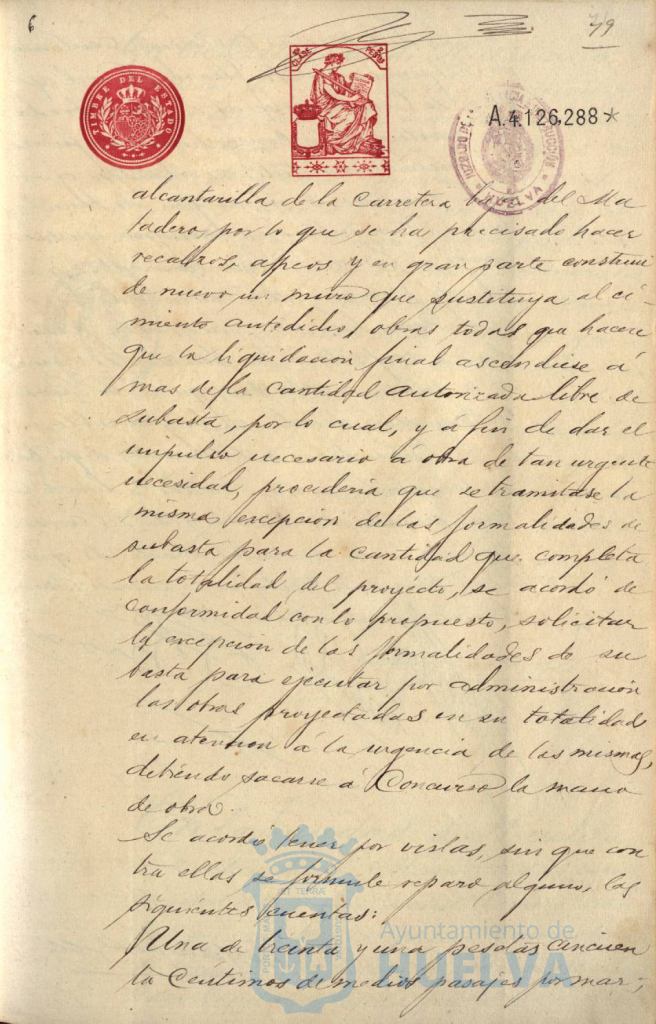 6
79
TIMBRE DEL ESTADO
CLASE
PESETAS
A.4.126.288*
HUELVA
alcantarilla de la Carretera del Ma
tadero, por lo que se ha precisado hacer
recalzos, apeos y en gran parte construir
de nuevo un muro que sustituya al ci-
miento antedicho, obras todas que hacen
que la liquidacion final ascendiese á
mas de la cantidad autorizada libre de
subasta, por lo cual, y á fin de dar el
impulso necesario á obra de tan urgente
necesidad, procederia que se tramitase la
misma excepcion de las formalidades de
subasta para la cantidad que completa
la totalidad del proyecto, se acordó de
conformidad con lo propuesto, solicitar
la excepcion de las formalidades de su
basta para ejecutar por administracion
las obras proyectadas en su totalidad
en atencion á la urgencia de las mismas,
debiendo sacarse á Concurso la mano
de obra.
Se acordó tener por vistas, sin que con
tra ellas se formule reparo alguno, las
siguientes cuentas:
Una de treinta y una pesetas cincuen
ta Centimos de medios pasajes por mar;
Ayuntamiento de
HUELVA